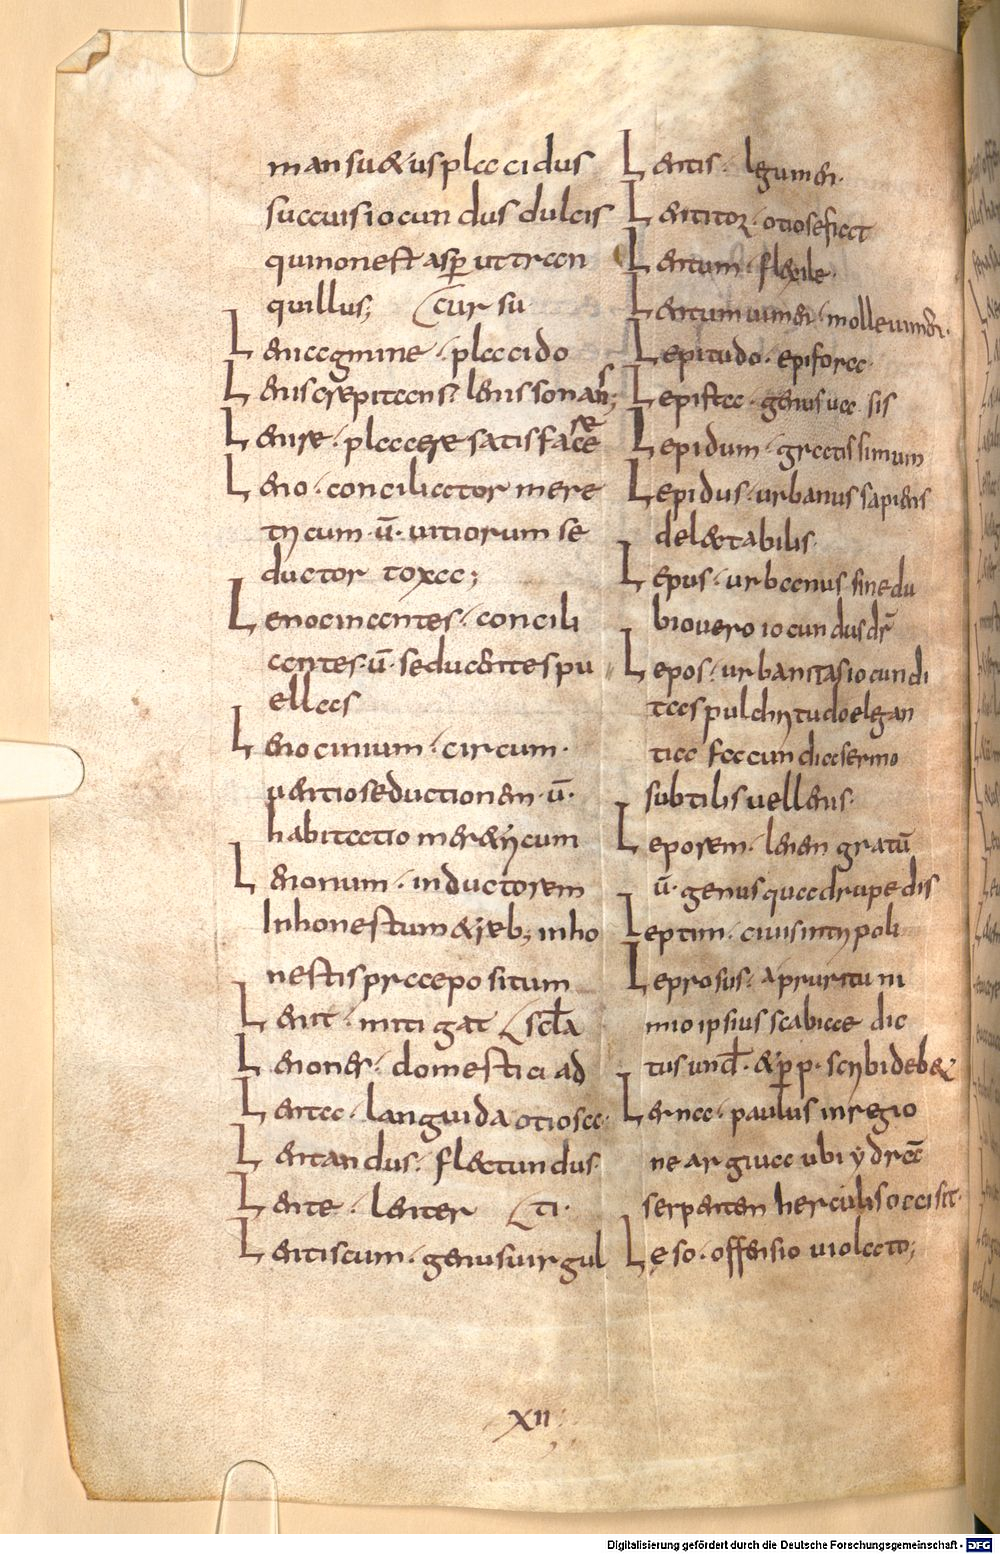 mansuetus placidus
suauis iocundus dulcis
qui non est asp ut tran
quillus; cursu
Leni agmine · placido
Leniscrepitans · lenis sonans;
Lenire · placare satisfacere
Leno · conciliator mere
tricum · ū · uitiorum se
ductor toxa;
Lenocinantes · concili
antes · ū · seducentes pu
ellas
Lenocinium · circum ·
uentio seductionem · ū ·
habitatio meretricum
Lenonum · inductorem
Inhonestum et reb; inho
nestis praepositum
Lenit · mitigat scła
Lenones · domestici ad
Lenta · languida otiosa ·
Lentandus · flectundus ·
Lente · leniter ti ·
Lentiscum · genus uirgul
Lentis · lgumen ·
Lentitor · otiose fiat
Lentum · flexile ·
Lentum uimen · molle uimen ·
Lepitudo · epifora ·
Lepista · genus uasis
Lepidum · gratissimum
Lepidus · urbanus sapiens
delectabilis ·
Lepus · urbanus sine du
bio uero iocundus dr
Lepos · urbanitas iocundi
tas pulchritudo elgan
tia facundia sermo
subtilis uel lenis ·
Leporem · lenem gratū
ū · genus quadrupedis
Leptim · ciuis in tripoli
Leprosus · a pruritu ni
mio ipsius scabiae dic
tus und · et p p · scribi deber
Lernea · palus in regio
ne argiua ubi ydrā
serpentem herculis occisit ·
Leso · offensio uiolato;
XII
Digitalisierung gefördert durch die Deutsche Forschungsgemeinschaft - DFG